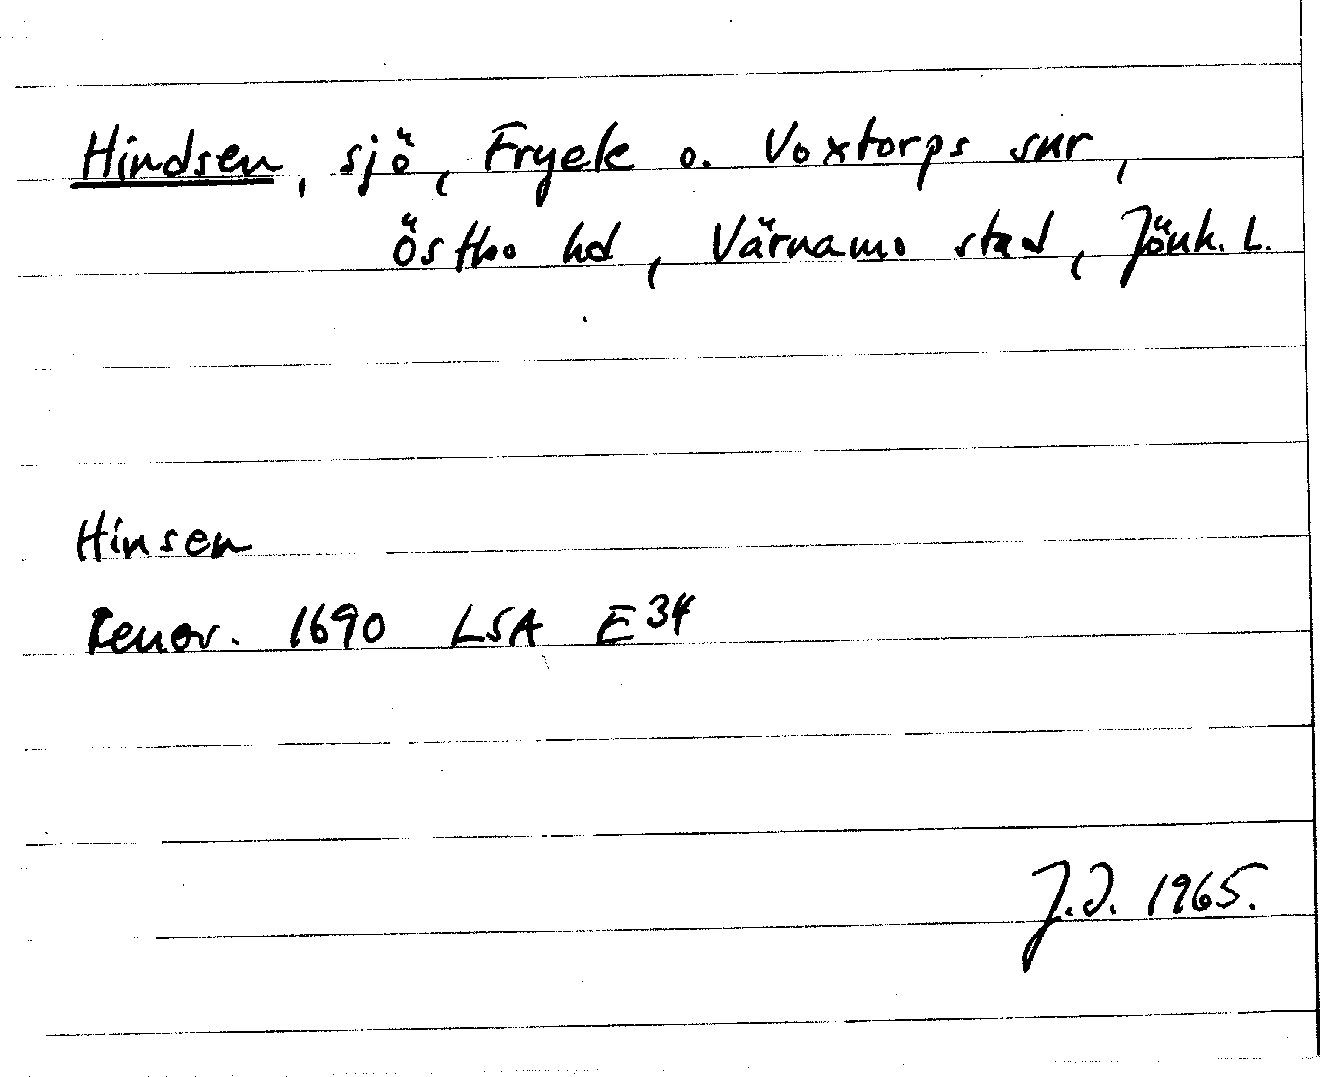 Hindsen, sjö, Fryele o. Voxtorps snr,
Östbo hd, Värnamo stad, Jönk. L.
Hinsen
Renov. 1690 LSA E34
J.D. 1965.